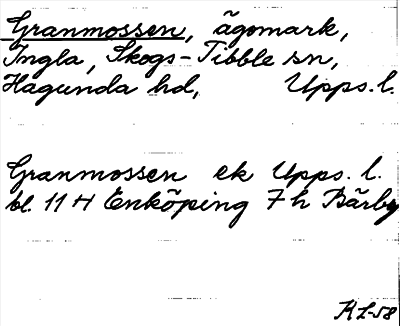 Granmossen, ägomark,
Ingla, Skogs-Tibble sn,
Hagunda hd, Upps.l.
Granmossen ek Upps. l.
bl. 11 H Enköping 7 h Bärby
KL-58